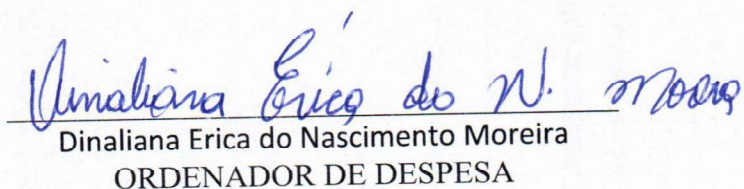 Dinaliana Érica do N. Moreira
Dinaliana Erica do Nascimento Moreira
ORDENADOR DE DESPESA